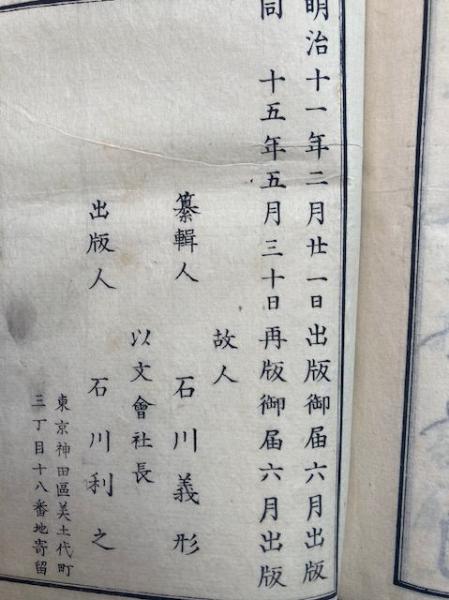 明治十一年二月廿一日出版御届六月出版
同 十五年五月三十日再版御届六月出版
故人
纂輯人 石川義形
以文會社長
出版人 石川利之
東京神田區美土代町
三丁目十八番地寄留